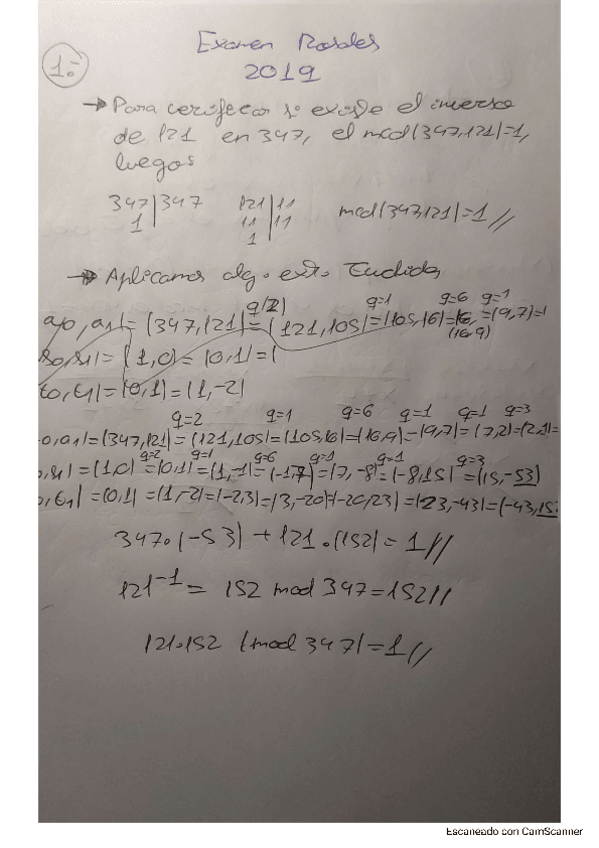 Examen Rosales
2019
1:
→ Para verificar si existe el inverso
de 121 en 347, el mcd(347,121)=1,
luegos
347|347 121|11 mcd(347,121)=1//
1| 11|11
1
→ Aplicamos alg. ext. Euclides
q(2) q=1 q=6 q=1
a0,a1|=(347,121)=(121,105)=(105,16)=16,=(9,7)=(
(16,9)
s0,s1|=(1,0)=(0,1)=(
t0,t1|=(0,1)=(1,-2)
q=2 q=1 q=6 q=1 q=1 q=3
0,a1)=(347,121)=(121,105)=(105,16)=(16,9)=(9,7)=(7,2)=(2,1)=
q=2 q=1 q=6 q=1 q=1 q=3
,s1)=(1,0)=(0,1)=(1,-1)=(-1,7)=(7,-8)=(-8,15)=(15,-53)
,t1)=(0,1)=(1,-2)=(-2,3)=(3,-20)=(-20,23)=(23,-43)=(-43,152
347·(-53)+121·(152)=1//
121⁻¹= 152 mod 347=152//
121·152 (mod 347)=1//
Escaneado con CamScanner